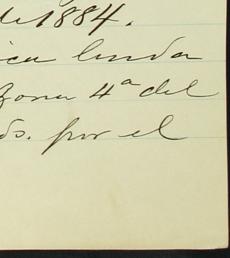 de 1884.
ica linda
Zona 4ª del
ds. por el